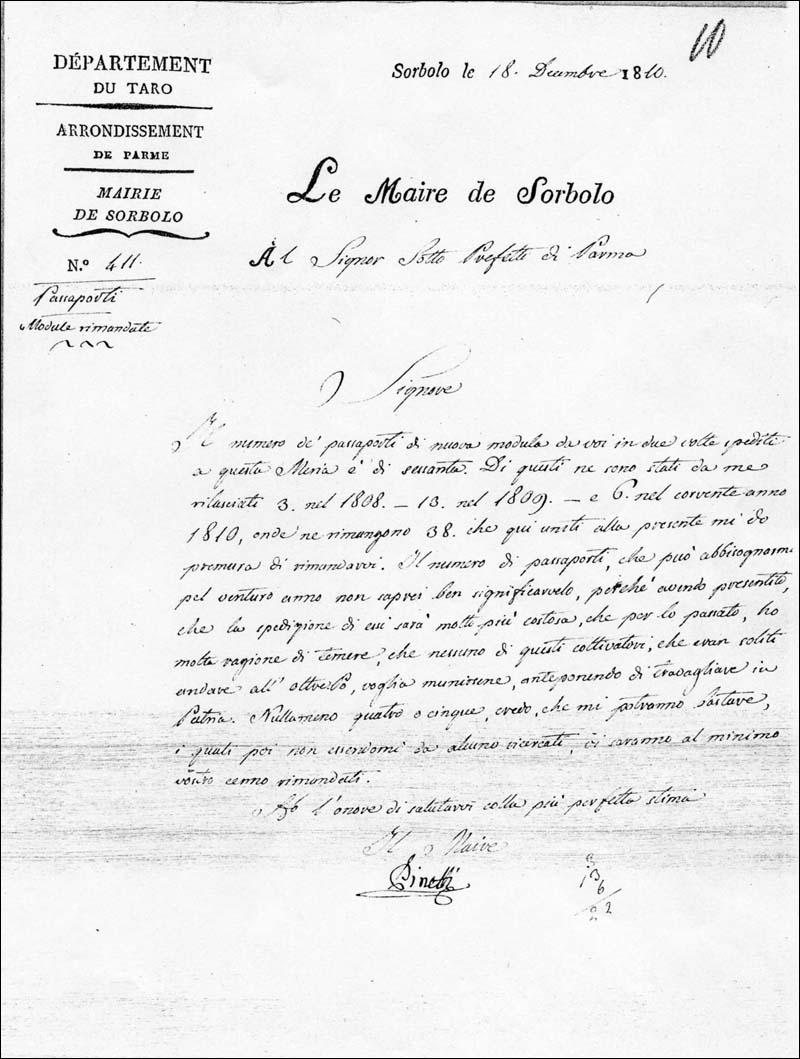 10
DÉPARTEMENT
DU TARO
ARRONDISSEMENT
DE PARME
MAIRIE
DE SORBOLO
N.º 411.
Passaporti
Modula rimandate
Sorbolo le 18. Decembre 1810.
Le Maire de Sorbolo
Àl Signor Sotto Prefetti di Parma
Signore
Il numero de' passaporti di nuova modula da voi in due volte spediti
a questa Meria è di sessanta. Di questi ne sono stati da me
rilasciati 3. nel 1808. – 13. nel 1809. – e 6. nel corrente anno
1810, onde ne rimangono 38. che qui uniti alla presente mi do
premura di rimandarvi. Il numero di passaporti, che può abbisognarmi
pel venturo anno non saprei ben significarvelo, perchè avendo presentito,
che la spedizione di essi sarà molto più costosa, che per lo passato, ho
molta ragione di temere, che nessuno di questi coltivatori, che eran soliti
andare all' oltre Pò, voglia munirsene, anteponendo di travagliare in
Patria. Nullameno quattro o cinque, credo, che mi potranno bastare,
i quali poi non essendomi da alcuno ricercati, vi saranno al minimo
vostro cenno rimandati.
Ho l'onore di salutarvi colla più perfetta stima
Il Maire
Pinelli
3
13
6
22